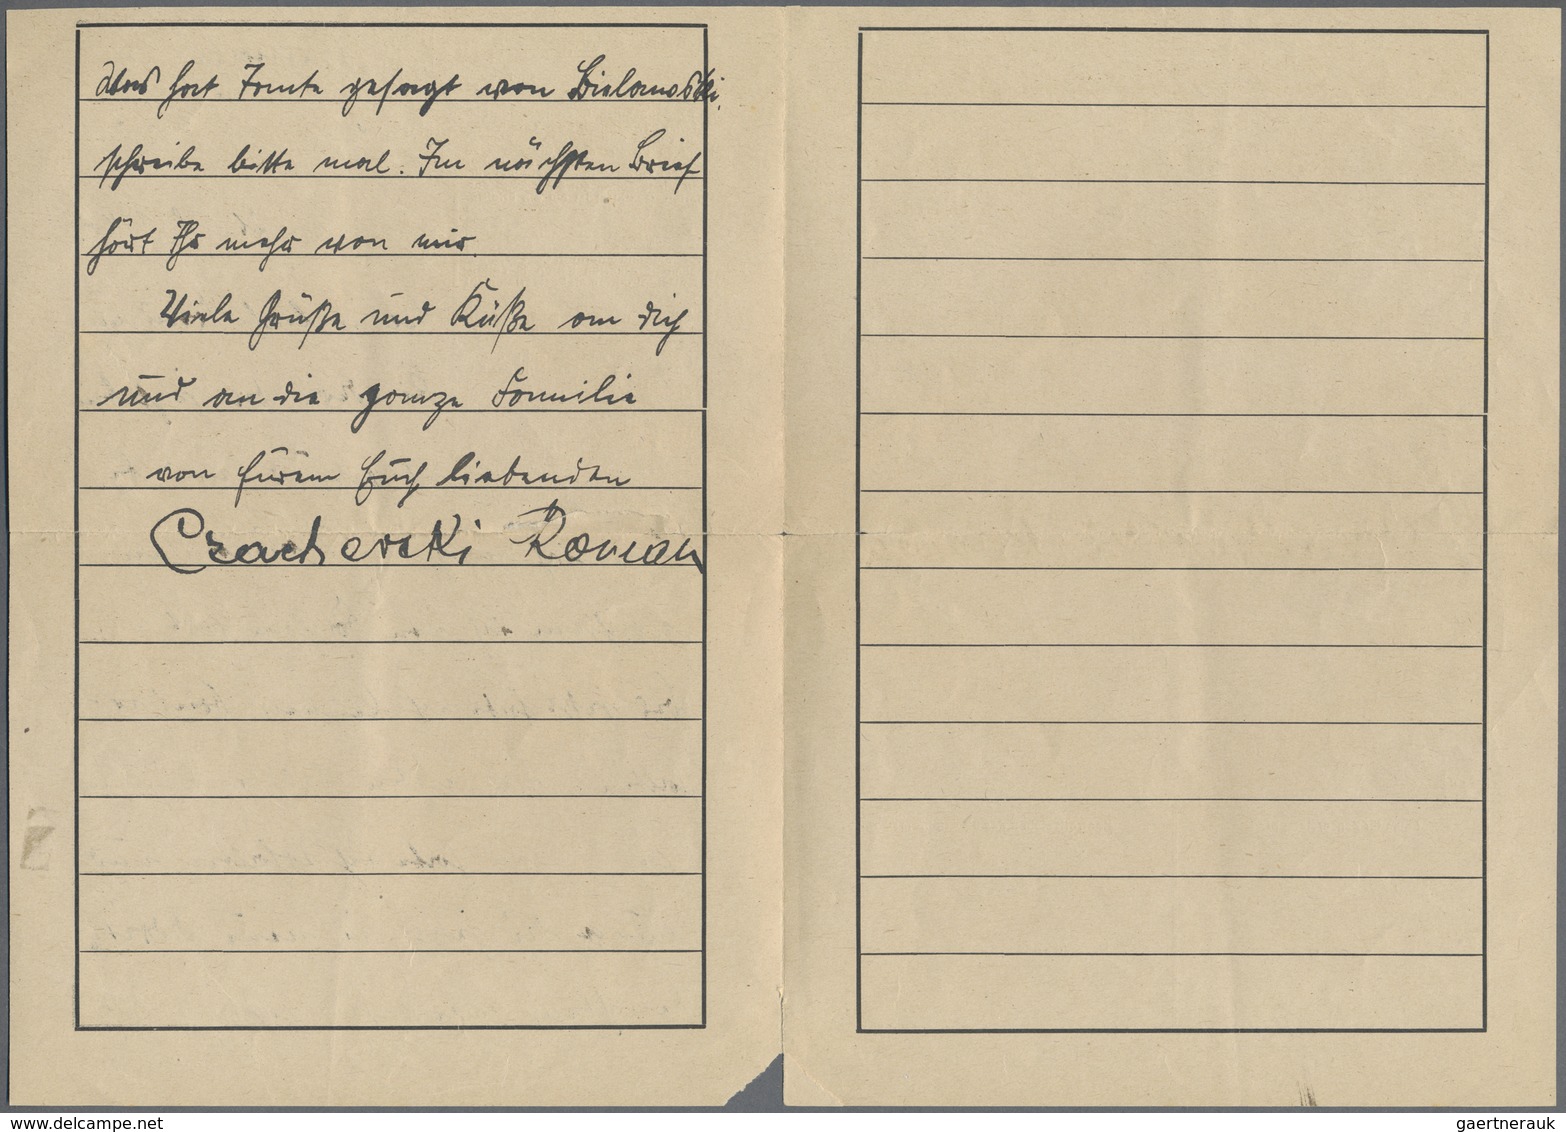 Was hat Tante gesagt von Bielanoski.
schreibe bitte mal. Im nächsten Brief
hört Ihr mehr von mir.
Viele Grüße und Küße an dich
und an die ganze Familie
von Eurem Euch liebenden
Roman
www.delcampe.net
gaertnerauk